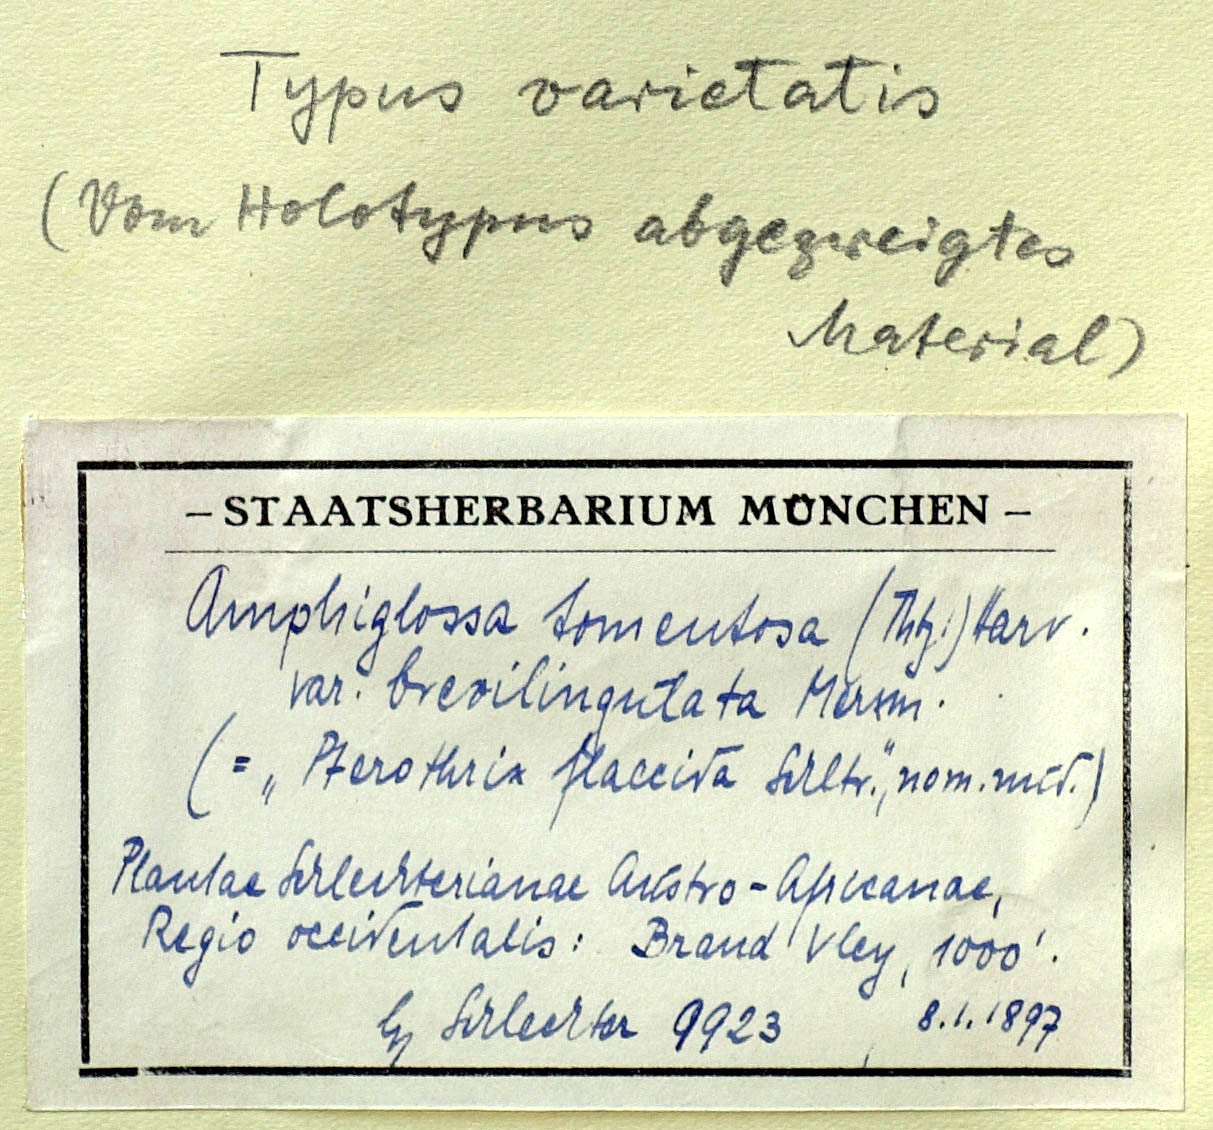 Typus varietatis
(Vom Holotypus abgezweigtes
Material)
– STAATSHERBARIUM MÜNCHEN –
Amphiglossa tomentosa (Thbg.) Harv.
var. brevilingulata Merxm.
(= „Pterothrix flaccida Schltr.", nom. nud.)
Plantae Schlechterianae Austro-Africanae,
Regio occidentalis: Brand Vley, 1000'.
lg Schlechter 9923 8.1.1897